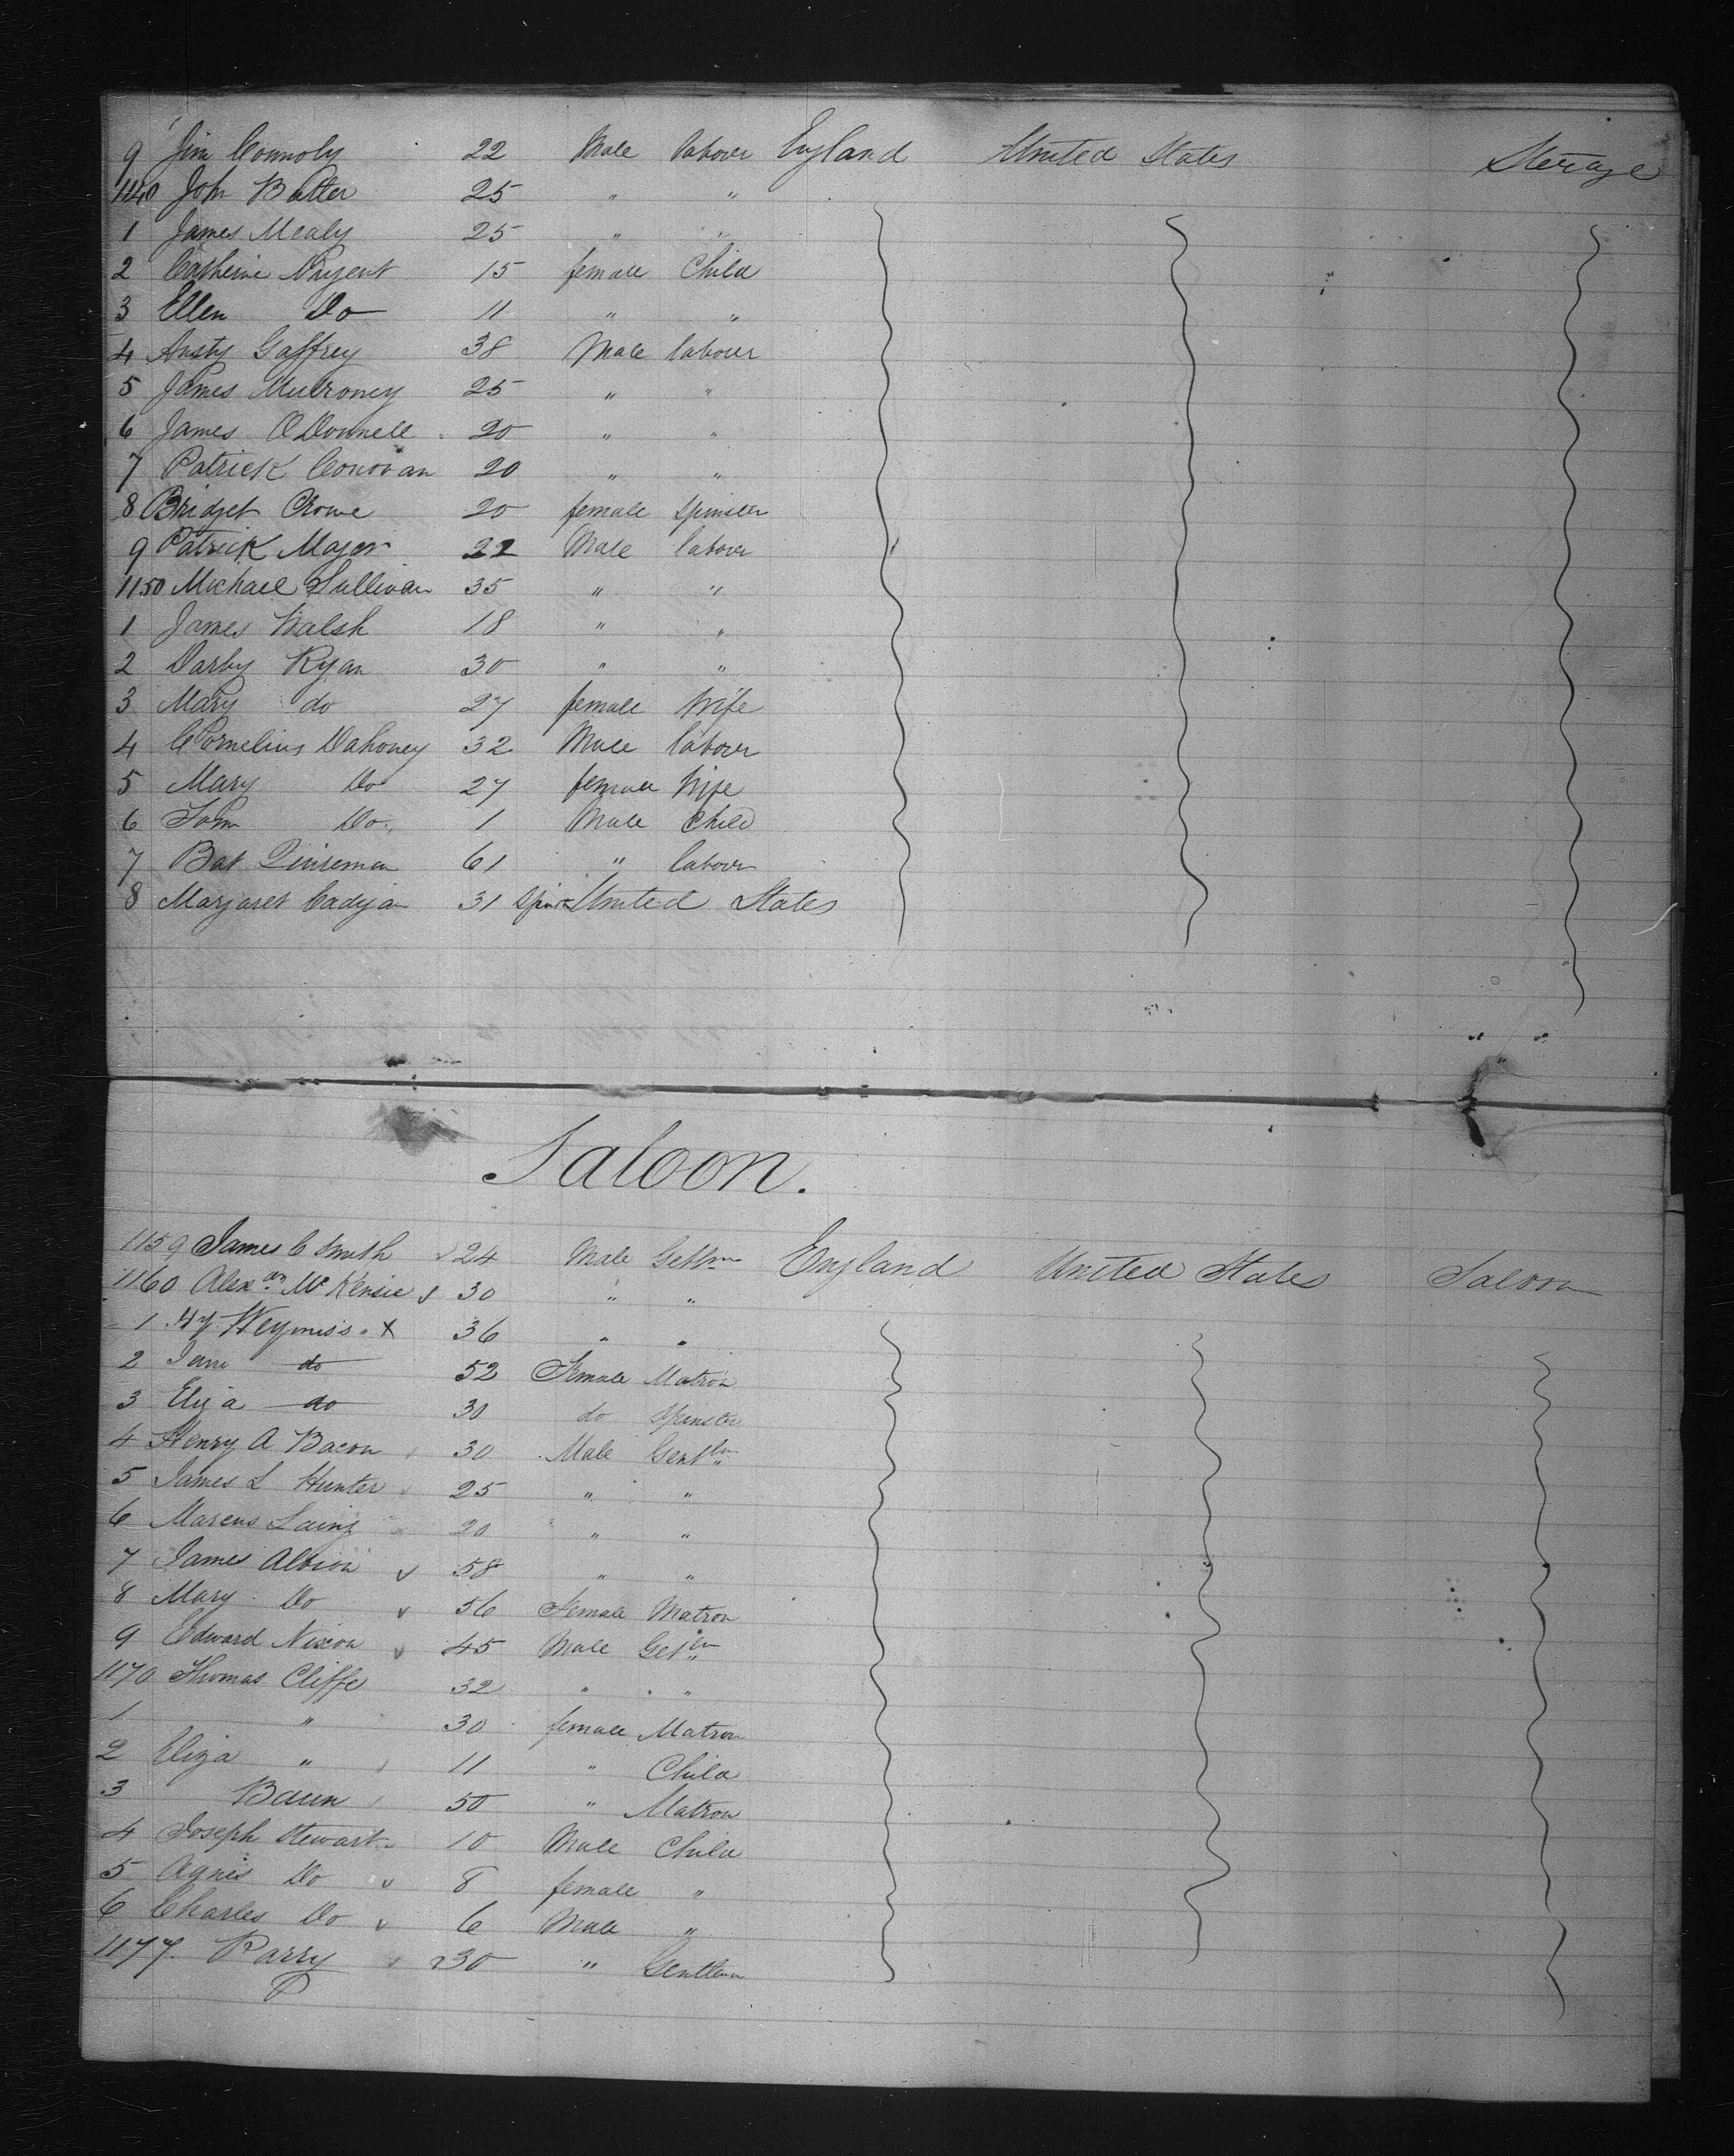 9 Jim Connoly 22 Male labourer England United States Sterage
1140 John Butler 25 " "
1 James Mealy 25 " "
2 Catherine Nugent 15 female Child
3 Ellen Do 11 " "
4 Ansty Gaffrey 38 Male labourer
5 James Mulroney 25 " "
6 James O Donnell 20 " "
7 Patrick Conovan 20 " "
8 Bridget Crowe 20 female Spinster
9 Patrick Major 22 Male labourer
1150 Michael Sullivan 35 " "
1 James Walsh 18 " "
2 Darby Ryan 30 " "
3 Mary do 27 female Wife
4 Cornelius Dahoney 32 Male labourer
5 Mary Do 27 female Wife
6 Do 1 Male Child
7 Bat 61 " labourer
8 Margaret 31 United States
Saloon.
1159 James C Smith 24 Male England United States Saloon
1160 Alexr McKensie 30 " "
1 Hy Weymiss X 36 " "
2 Jane do 52 Female Matron
3 Eliza do 30 do Spinster
4 Henry A Bacon 30 Male Gentln
5 James L Hunter 25 " "
6 Marcus Laing 20 " "
7 James Albion 58 " "
8 Mary Do 56 Female Matron
9 Edward Nixon 45 Male
1170 Thomas Cliffe 32 " "
1 " 30 female Matron
2 Eliza " 11 " Child
3 50 " Matron
4 Joseph Stewart 10 Male Child
5 Agnes Do 8 female "
6 Charles Do 6 Male "
1177 Parry 30 "